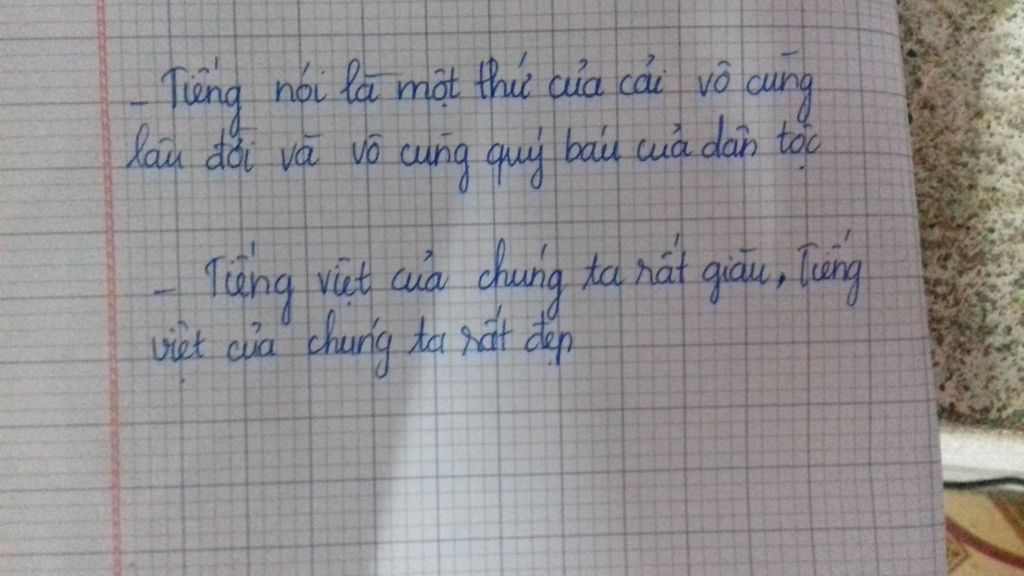 - Tiếng nói là một thứ của cải vô cùng
lâu đời và vô cùng quý báu của dân tộc
- Tiếng việt của chúng ta rất giàu, Tiếng
việt của chúng ta rất đẹp